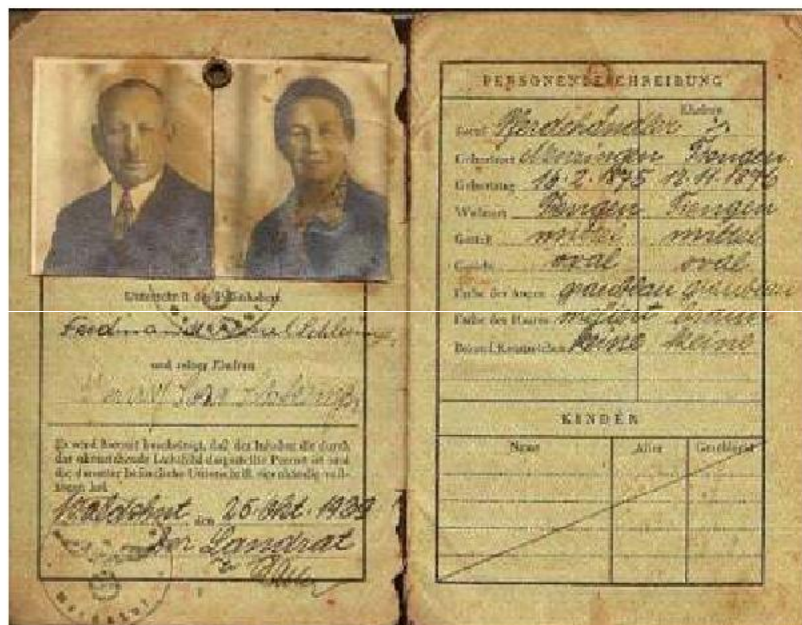 Unterschrift des Paßinhabers
Ferdinand Israel Schlesinger
und seiner Ehefrau
Sara
Es wird hiermit bescheinigt, daß der Inhaber die durch
das obenstehende Lichtbild dargestellte Person ist und
die darunter befindliche Unterschrift eigenhändig voll-
zogen hat.
Waldshut, den 25. Okt. 1939
Der Landrat
PERSONENBESCHREIBUNG
Ehefrau
Beruf Pferdehändler
Geburtsort Menzingen Tiengen
Geburtstag 16.2.1875 12.11.1876
Wohnort Tiengen Tiengen
Gestalt mittel mittel
Gesicht oval oval
Farbe der Augen graublau graublau
Farbe des Haares meliert braun
Besond. Kennzeichen keine keine
KINDER
Name Alter Geschlecht